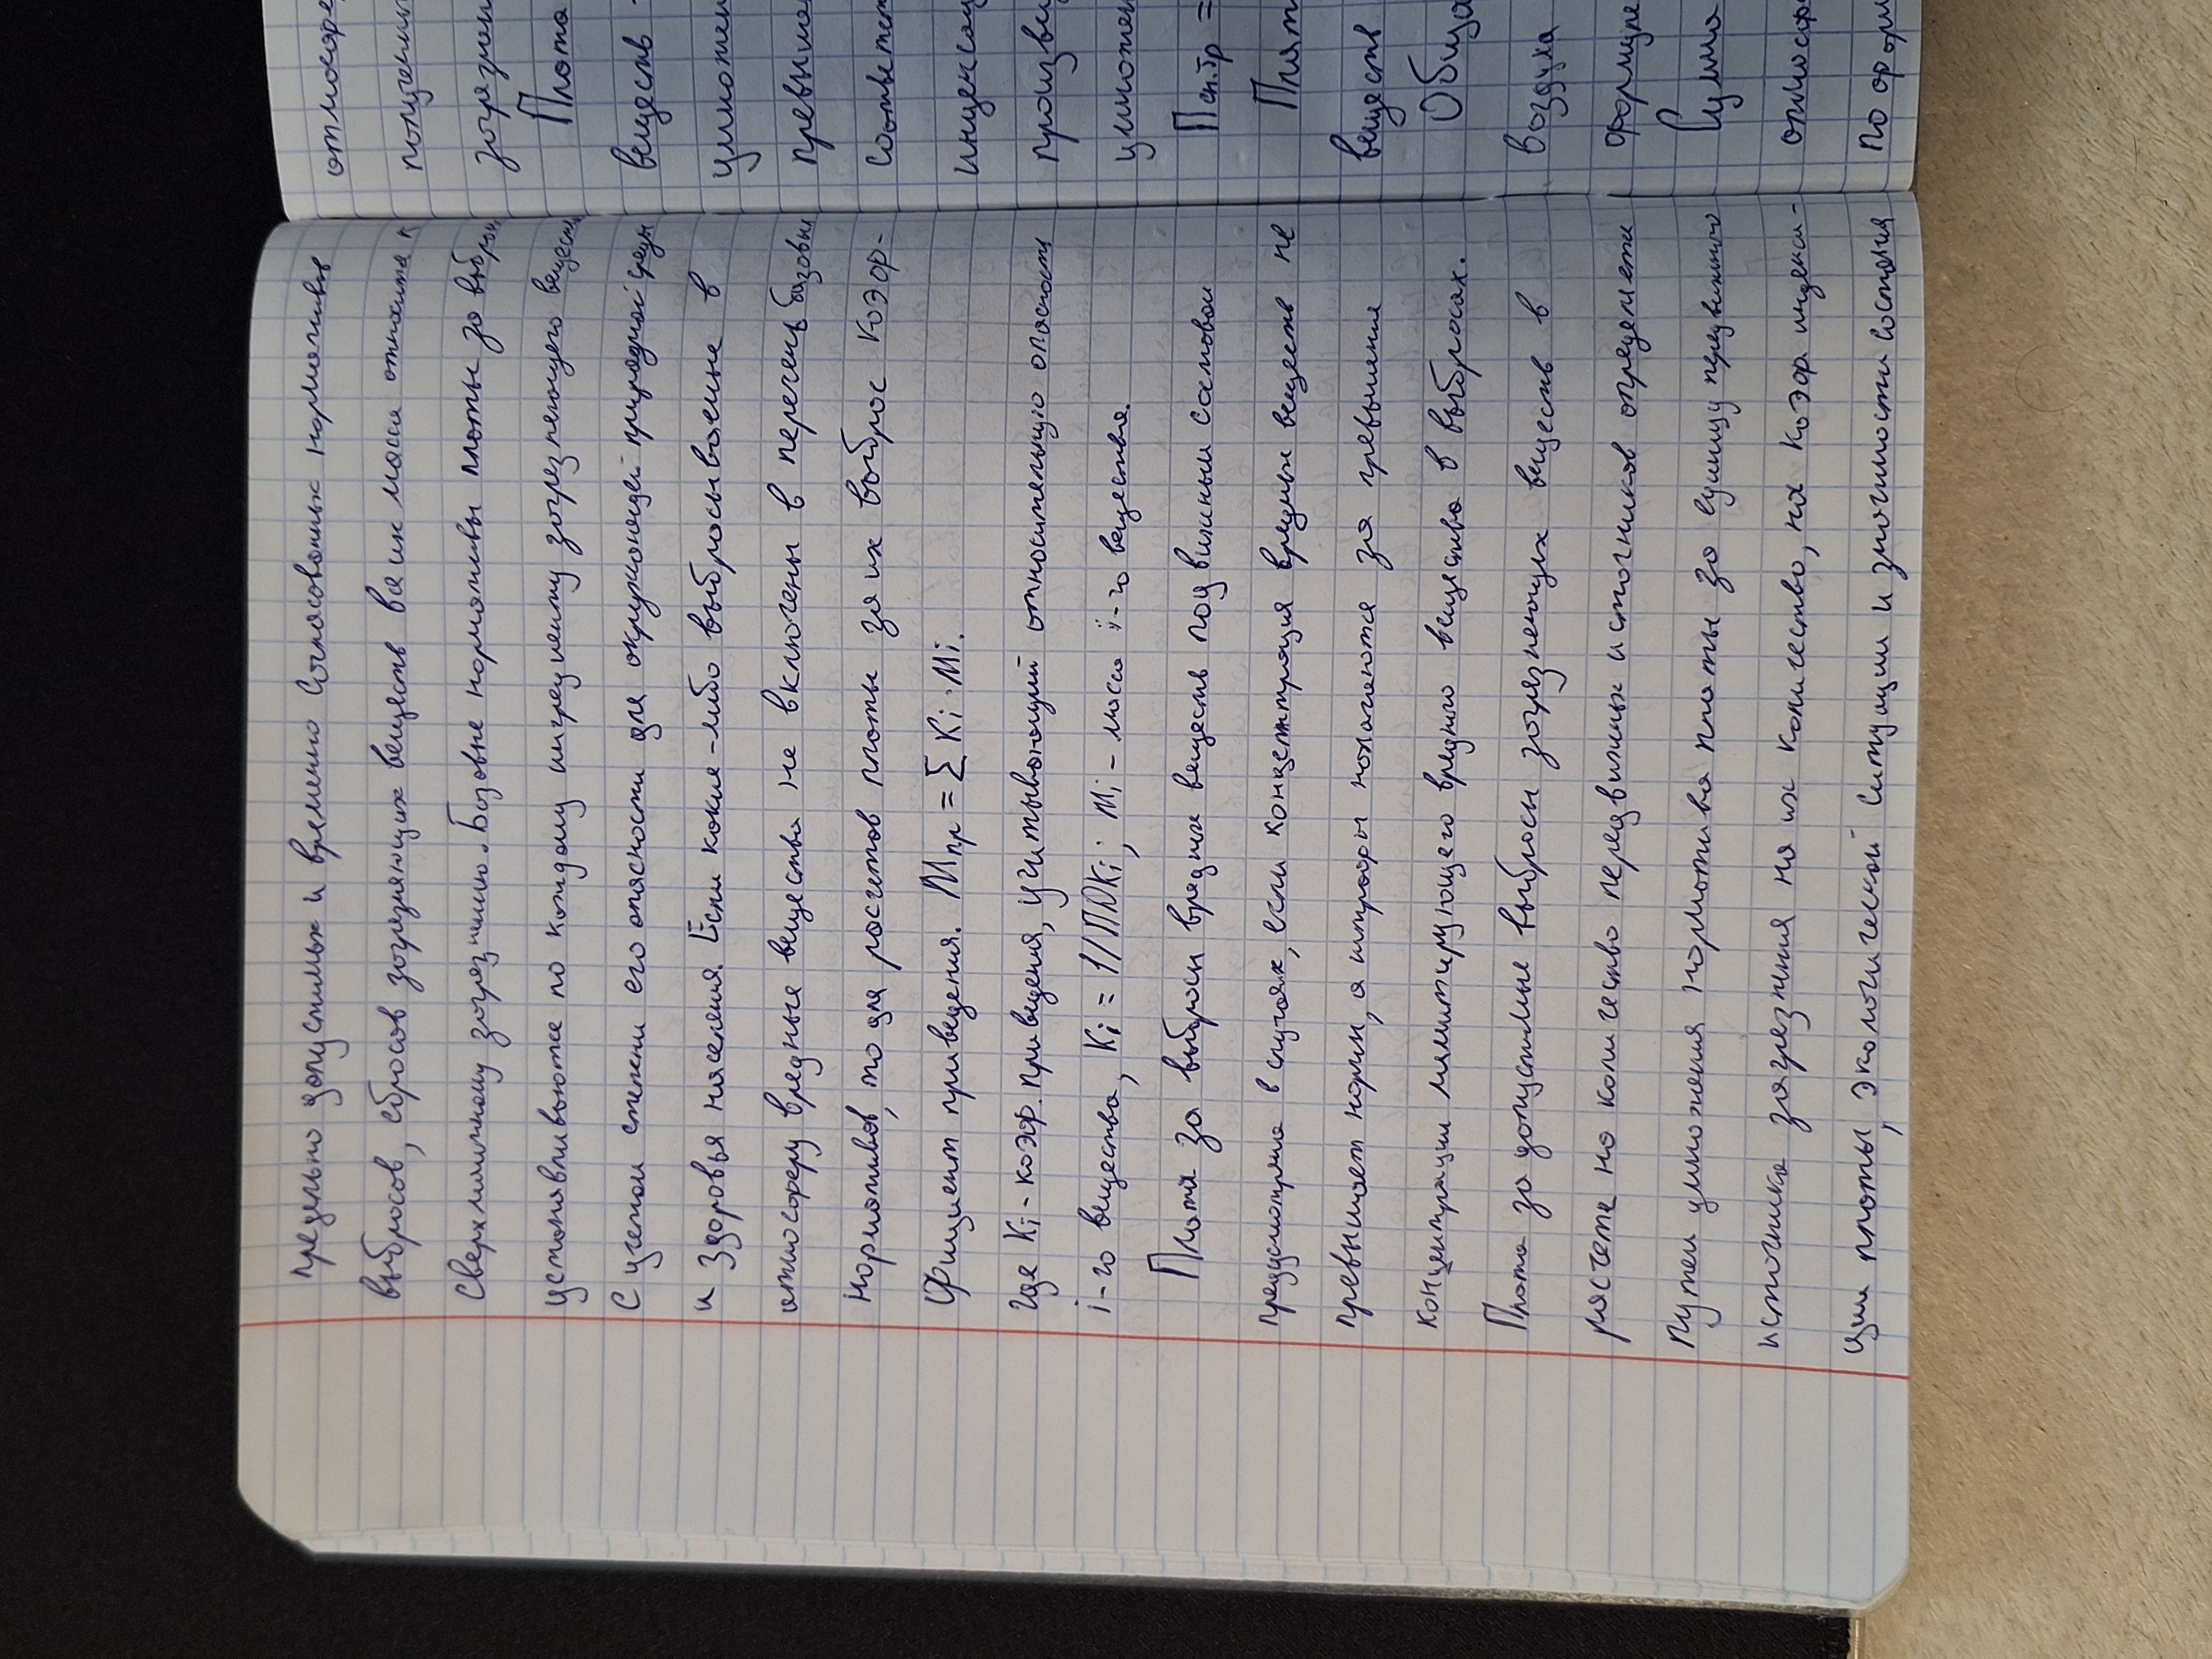 предельно допустимых и временно согласованных нормативов
выбросов, сбросов загрязняющих веществ вся их масса относится к
сверхлимитному загрязнению. Базовые нормативы платы за выбросы
устанавливаются по каждому ингредиенту загрязняющего вещества
с учетом степени его опасности для окружающей природной среды
и здоровья населения. Если какие-либо выбрасываемые в
атмосферу вредные вещества не включены в перечень базовых
нормативов, то для расчетов платы за их выброс коэф-
фициент приведения. Mпр = ∑ Ki · Mi.
где Ki - коэф. приведения, учитывающий относительную опасность
i-го вещества, Ki = 1/ПДКi; Mi - масса i-го вещества.
Плата за выбросы вредных веществ подвижным составом
предусмотрена в случаях, если концентрация вредных веществ не
превышает нормы, а штрафы налагаются за превышение
концентрации лимитирующего вредного вещества в выбросах.
Плата за допустимые выбросы загрязняющих веществ в
расчете на количество передвижных источников определяется
путем умножения норматива платы за единицу передвижного
источника загрезнния на их количество, на коэф индекса-
ции платы, экологической ситуации и значимости состояния
атмосфер
получения
загрязнен
Плата
веществ
умножени
превыша
соответст
индексац
произве
умножен
Псп.тр =
Плат
веществ
Обща
воздуха
формуле
Сумма
атмосф
по форм